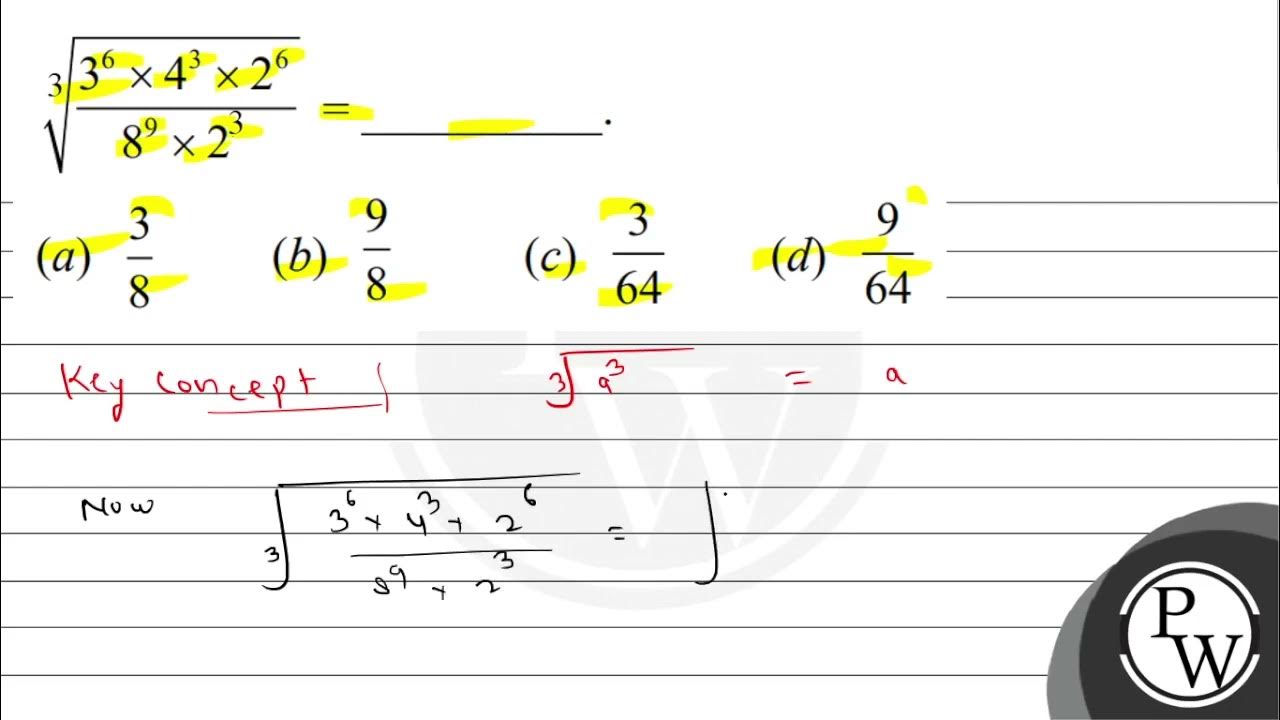 ∛(3⁶ × 4³ × 2⁶ / 8⁹ × 2³) = ________.
(a) 3/8 (b) 9/8 (c) 3/64 (d) 9/64
Key concept | ∛a³ = a
Now ∛(3⁶ × 4³ × 2⁶ / 8⁹ × 2³) =
P
W